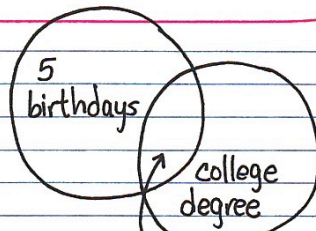 5
birthdays
college
degree